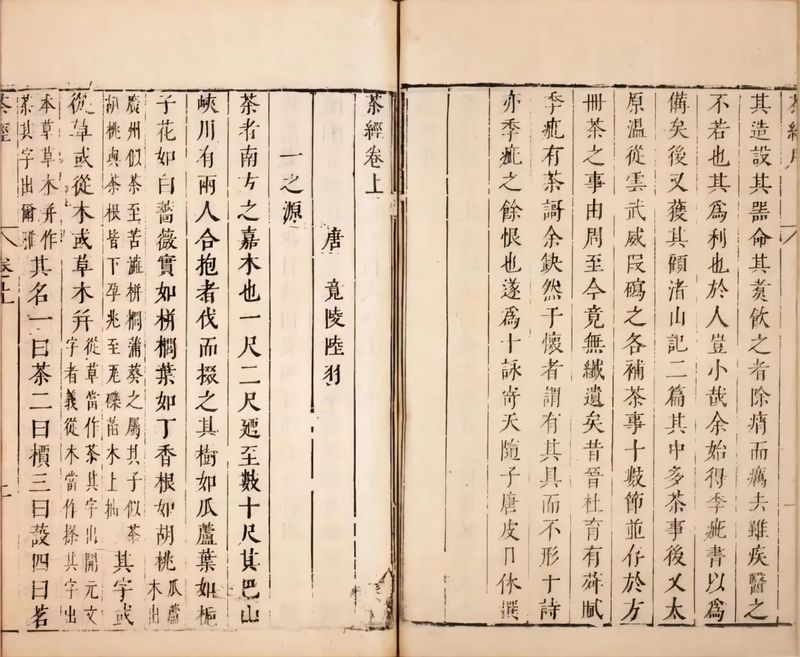 茶經序
其造設其器命其煑飲之者除痟而癘去雖疾醫之
不若也其爲利也於人豈小哉余始得季疵書以爲
備矣後又獲其顧渚山記二篇其中多茶事後又太
原溫從雲武威叚磶之各補茶事十數節並存於方
冊茶之事由周至今竟無纖遺矣昔晉杜育有荈賦
季疵有茶謌余缺然于懷者謂有其具而不形于詩
亦季疵之餘恨也遂爲十詠寄天隨子唐皮日休撰
茶經卷上
唐 竟陵陸羽
一之源
茶者南方之嘉木也一尺二尺廼至數十尺其巴山
峽川有兩人合抱者伐而掇之其樹如瓜蘆葉如梔
子花如白薔薇實如栟櫚葉如丁香根如胡桃瓜蘆木出
廣州似茶至苦澁栟櫚蒲葵之屬其子似茶胡桃與茶根皆下孕兆至瓦礫苗木上抽其字或
從草或從木或草木并從草當作茶其字出開元文字者義從木當作搽其字出
本草草木并作茶其字出爾雅其名一曰茶二曰檟三曰蔎四曰茗
茶經 卷上